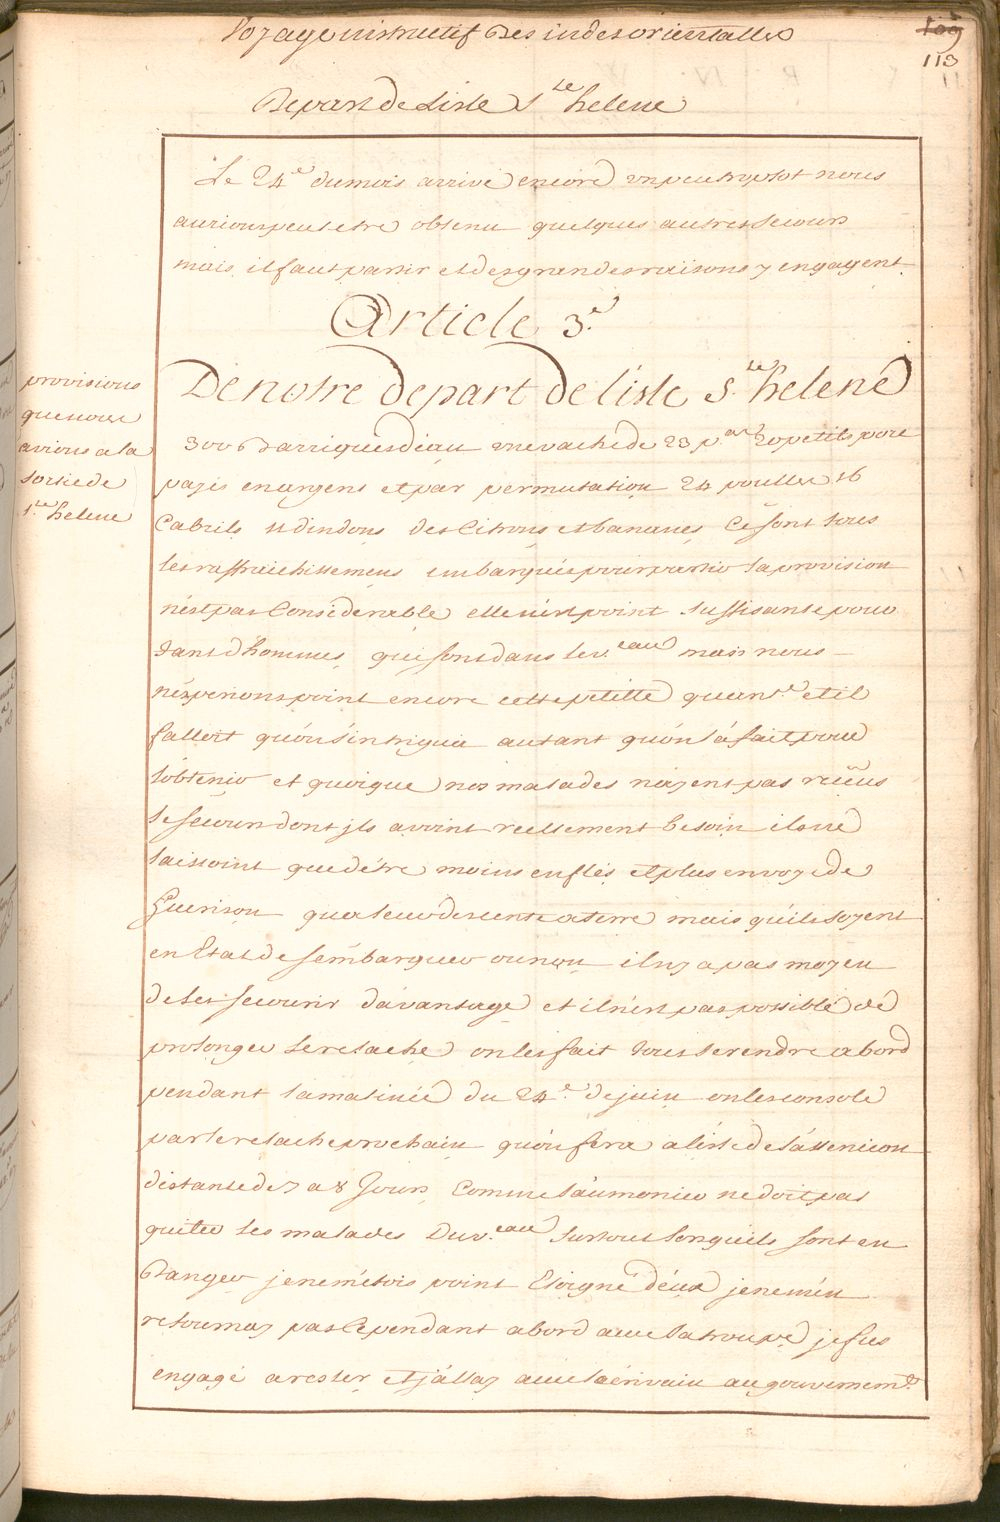 Voyage instructif Des indes orientalles
109
113
Depart de Lisle Ste helene
Le 24e du mois arrivé encore un peu trop tot nous
aurions peut etre obtenu quelques autres secours
mais il faut partir et des grandes raisons y engagent
Article 3e
De notre depart de l'isle Ste helene
provisions
que nous
avions a la
sortie de
Ste helene
300 Barriques d'eau une vache de 23 par 20 petits porc
payés en argent et par permutation 24 poulles 16
Cabrils 11 dindons des Citrons et bananes, Ce sont tous
les raffraichissemens embarqués pour partir la provision
n'est pas Considerable elle n'est point suffisante pour
tant d'hommes qui sont dans le v.eau mais nous
n'esperions point encore cette petitte quant.é et il
falloit qu'on s'intriguа autant qu'on l'a fait pour
l'obtenir et quoique nos malades n'ayent pas reçûs
le secours dont ils avoint reellement besoin ils ne
laissoint que d'être moins enflés et plus en voye de
Guerison qu'a leur descente a terre mais qu'ils soyent
en Etat de s'embarquer ou non il n'y a pas moyen
de les secourir d'avantage et il n'est pas possible de
prolonger le relache on les fait tous se rendre a bord
pendant la matinée du 24e de juin on les console
par le relache prochain qu'on fera a l'isle de l'assencion
distante de 7 a 8 Jours, Comme l'aumonier ne doit pas
quitter les malades Du v.eau surtout lorsqu'ils sont en
Danger je ne m'étois point Eloigné d'eux je ne m'en
retournay pas Cependant a bord avec la troupe je fus
engagé a rester et j'allay avec l'écrivain au gouvernemt